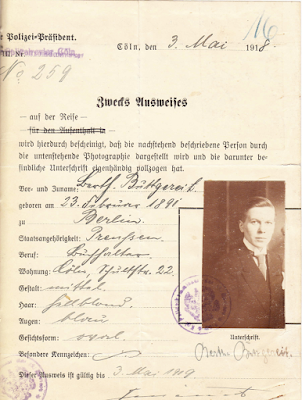 Polizei-Präsident.
No 259
16
Cöln, den 3. Mai 1918
Zwecks Ausweises
auf der Reise
für den Aufenthalt in
wird hierdurch bescheinigt, daß die nachstehend beschriebene Person durch
die untenstehende Photographie dargestellt wird und die darunter be-
findliche Unterschrift eigenhändig vollzogen hat.
Vor- und Zuname: Berth. Büttgereit
geboren am 23. Februar 1891
zu Berlin
Staatsangehörigkeit: Preussen
Beruf: Buchhalter
Wohnung: Köln, 22
Gestalt: mittel
Haar: hellblond
Augen: blau
Gesichtsform: oval
Besondere Kennzeichen:
Unterschrift.
Berth. Büttgereit
Dieser Ausweis ist gültig bis 3 Mai 1919